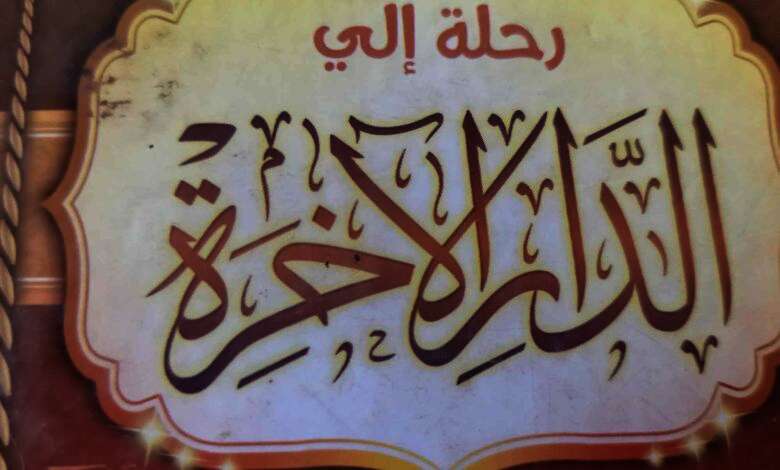 رحلة إلي
الدَّار الآخرة